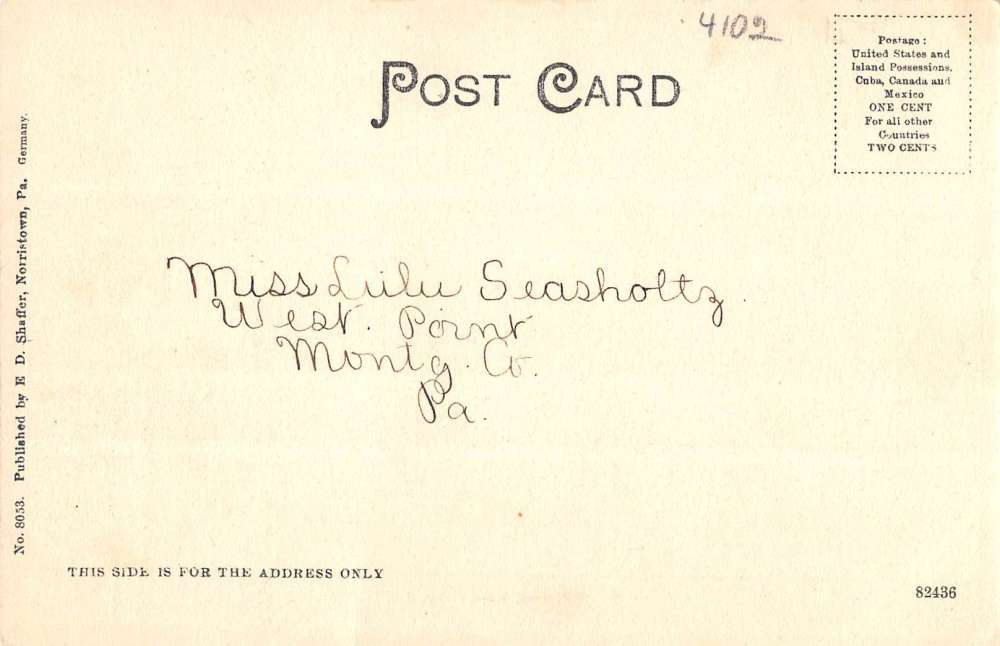 4102
POST CARD
Postage :
United States and
Island Possessions,
Cuba, Canada and
Mexico
ONE CENT
For all other
Countries
TWO CENTS
Miss Lulu Seasholtz.
West. Point
Montg. Co.
Pa.
No. 8053. Published by E D. Shaffer, Norristown, Pa. Germany.
THIS SIDE IS FOR THE ADDRESS ONLY
82436